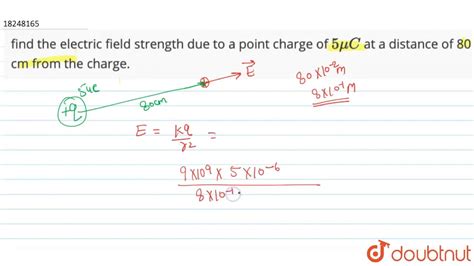 18248165
find the electric field strength due to a point charge of 5μC at a distance of 80
cm from the charge.
5μC
+q
80cm
E
80×10⁻²m
8×10⁻¹m
E = kq/r² =
9×10⁹ × 5×10⁻⁶
8×10⁻¹
doubtnut